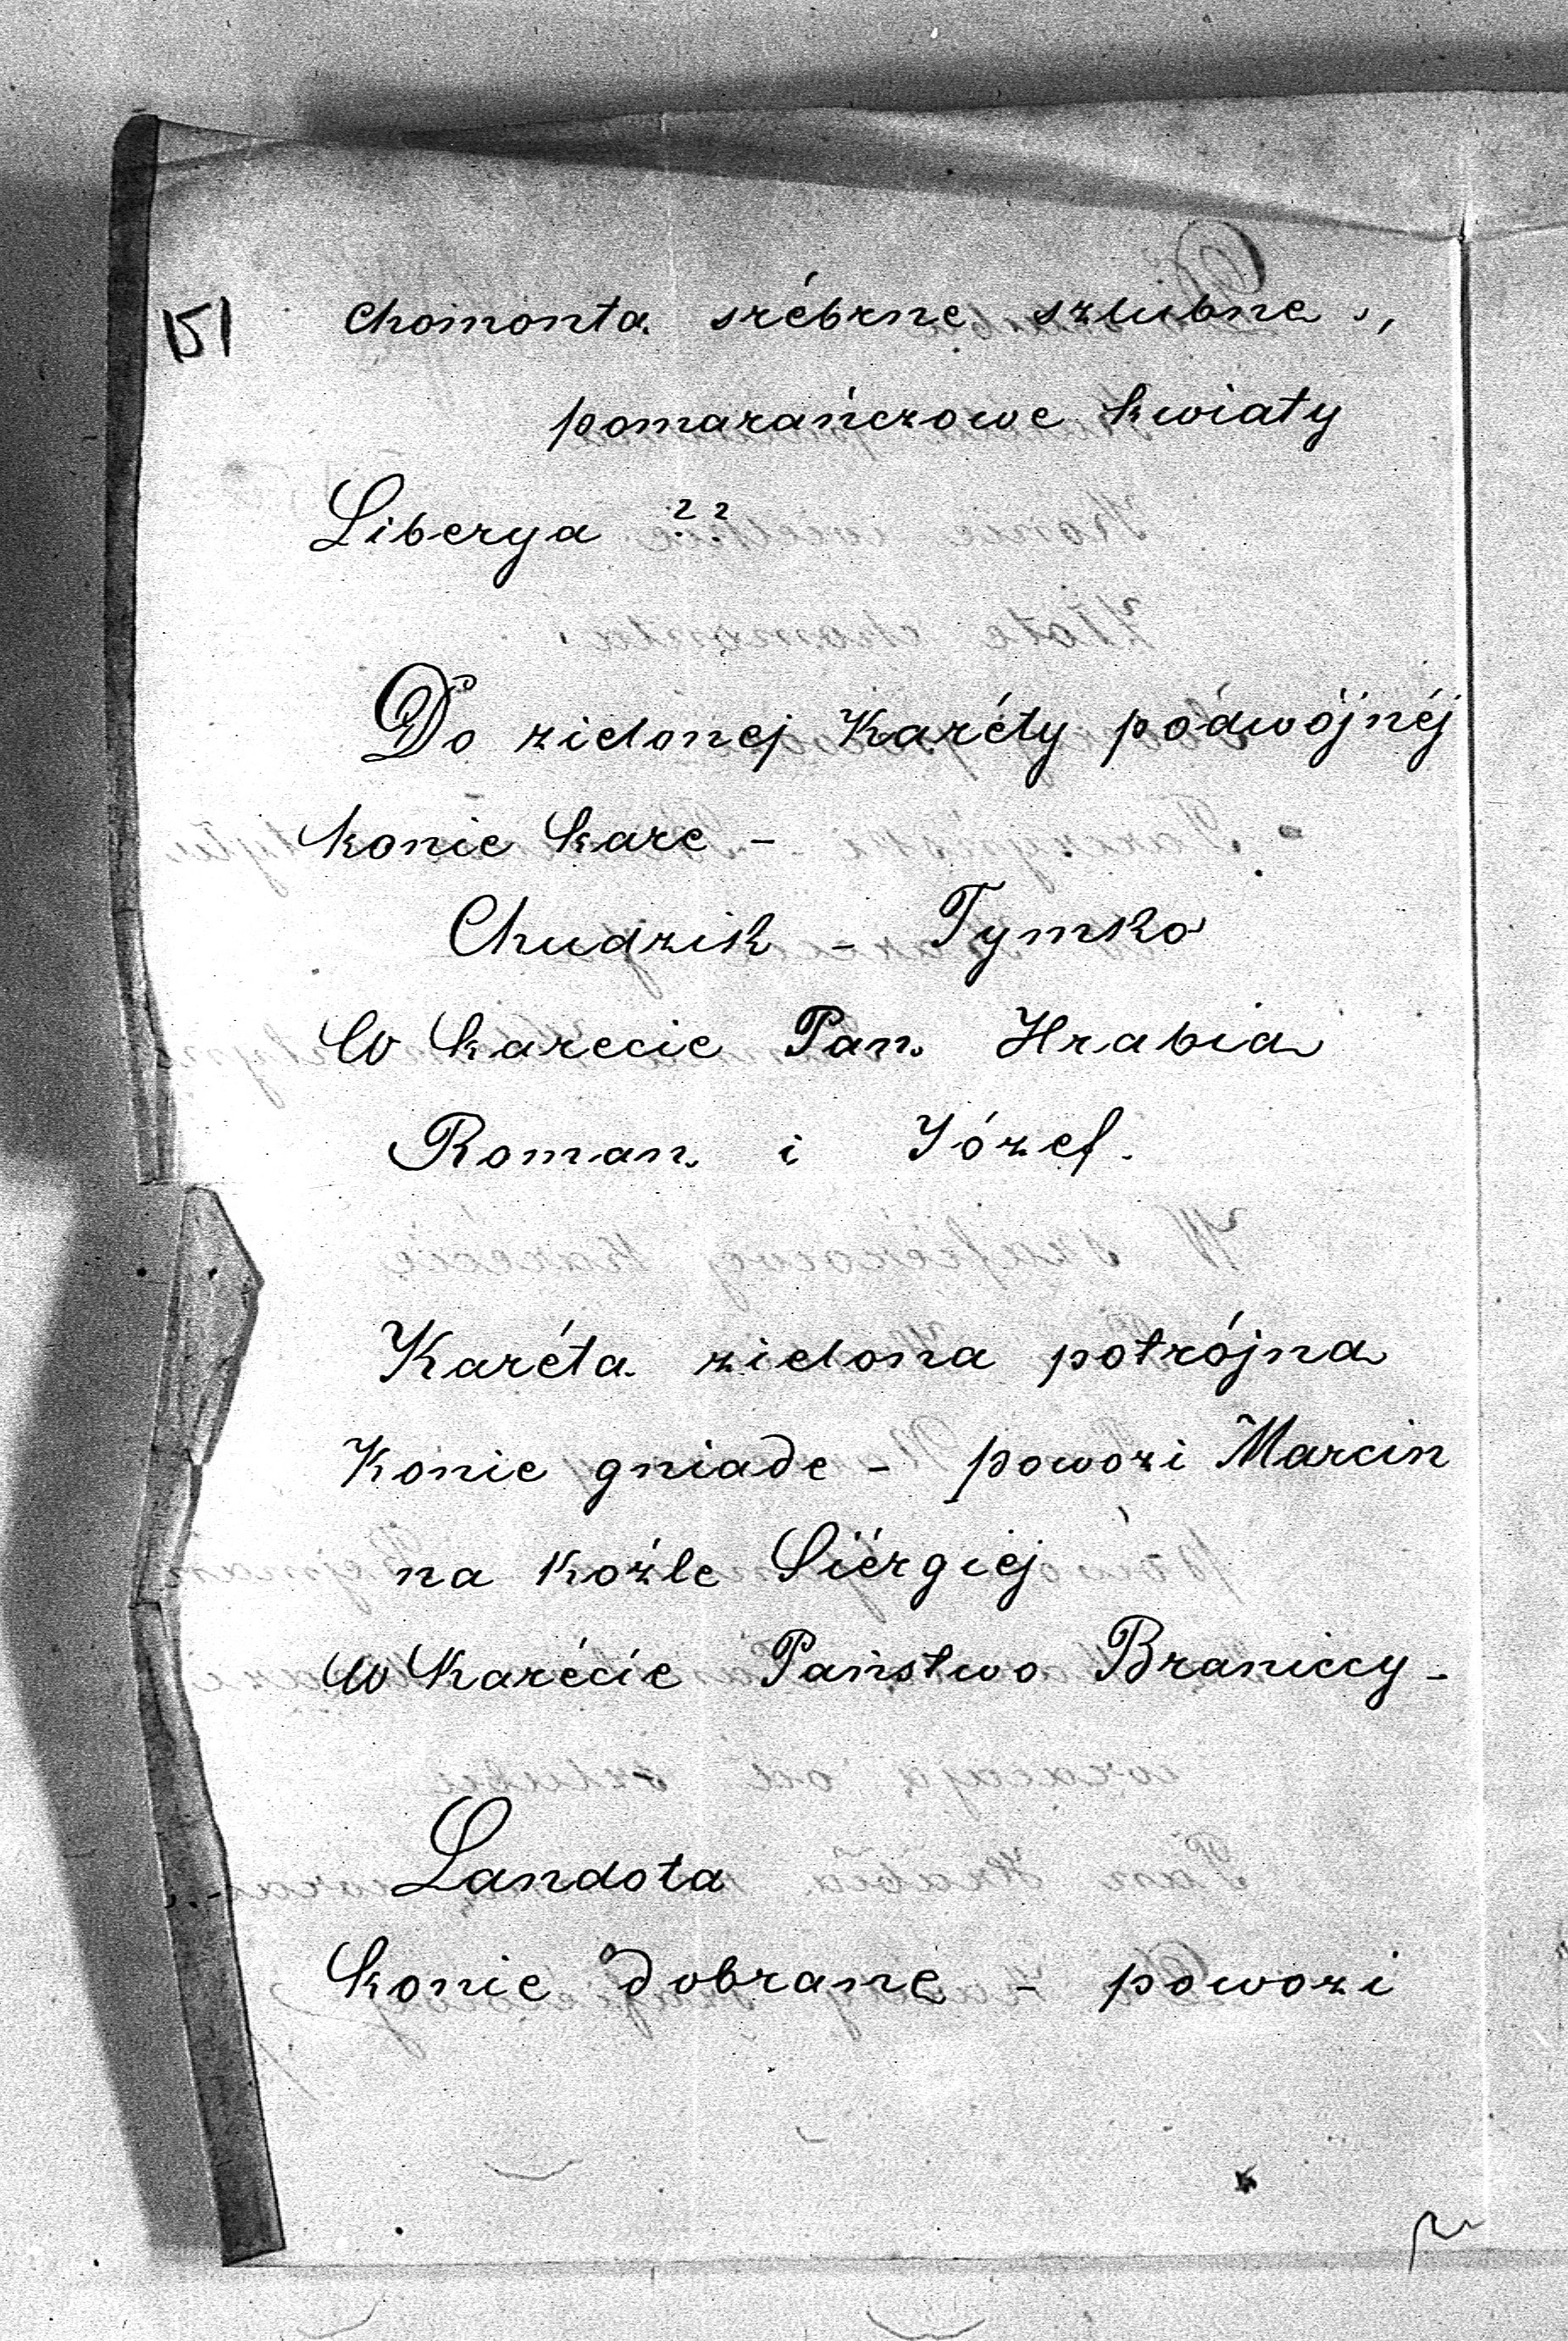 151
chomonta srébrne szlubne,
pomarańczowe kwiaty
Liberya ??
Do zielonej Karéty podwójnéj
konie kare -
Chudzik - Tymko
W karecie Pan Hrabia
Roman i Józef.
Karéta zielona potrójna
Konie gniade - powozi Marcin
na koźle Siergiej
W Karécie Państwo Braniccy -
Landota
konie dobrane - powozi